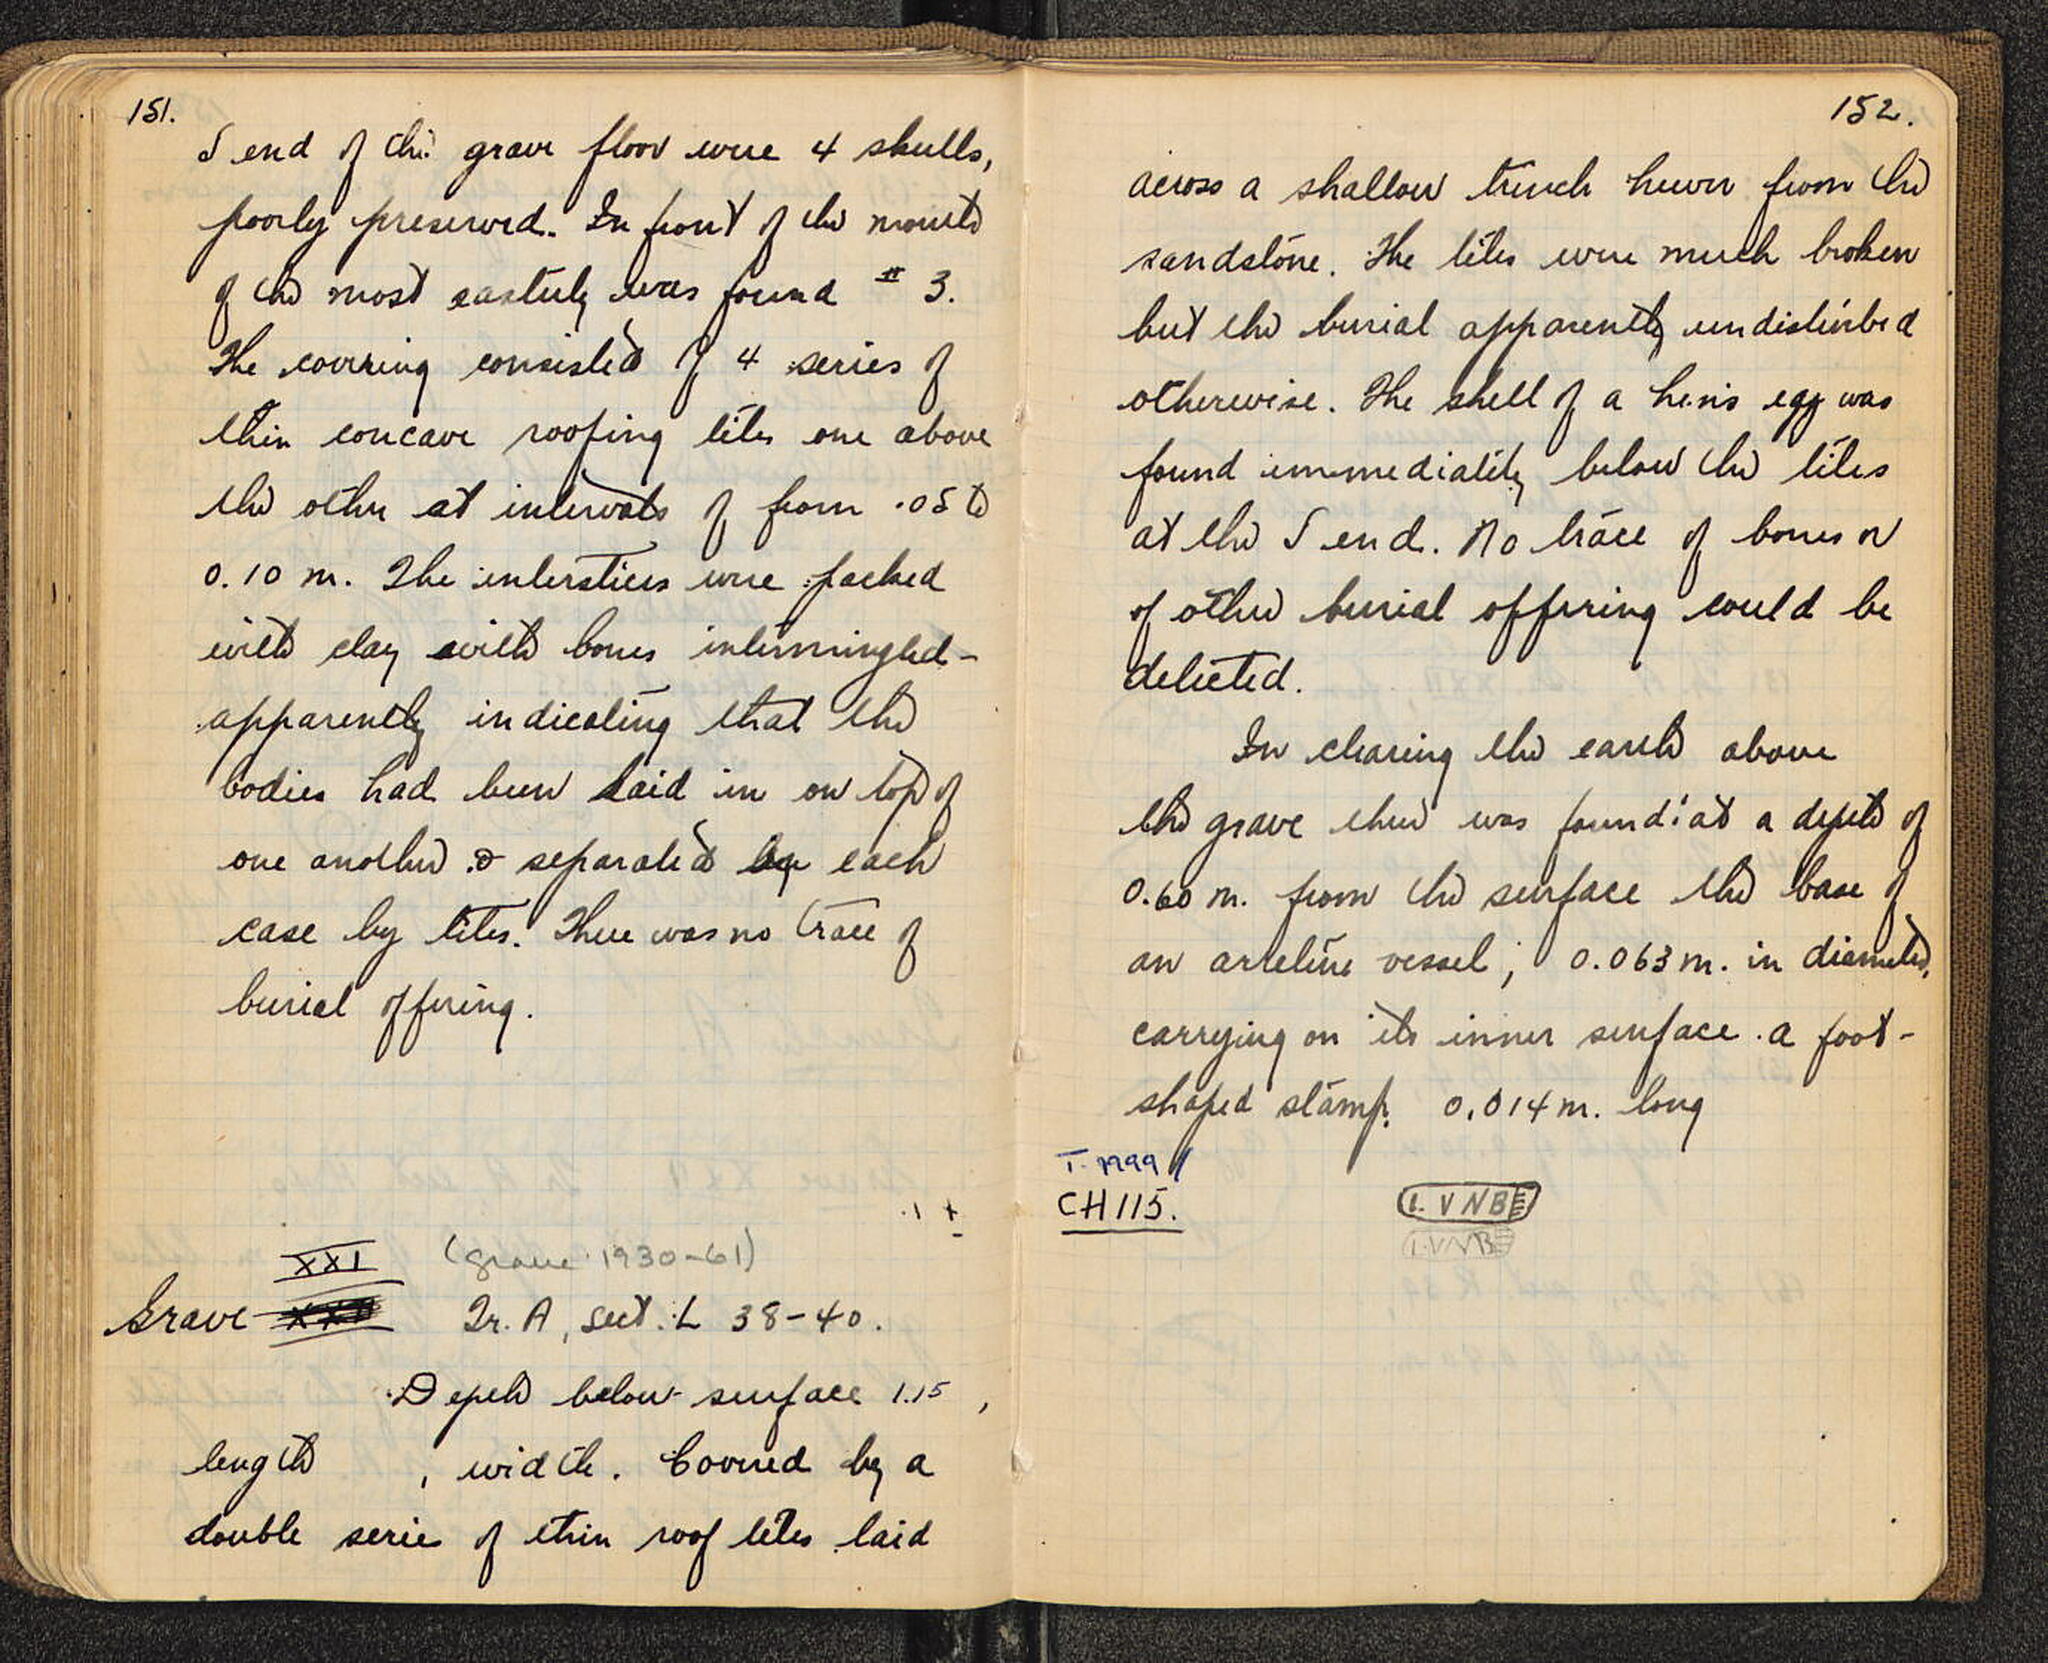 151.
S end of the grave floor were 4 skulls,
poorly preserved. In front of the mouth
of the most easterly was found # 3.
The covering consisted of 4 series of
thin concave roofing tiles one above
the other at intervals of from .05 to
0.10 m. The interstices were packed
with clay with bones intermingled -
apparently indicating that the
bodies had been laid in on top of
one another & separated in each
case by tiles. There was no trace of
burial offering.
XXI (grave 1930-61)
Grave Tr. A, sect. L 38-40.
Depth below surface 1.15 ,
length , width. Covered by a
double series of thin roof tiles laid
152.
across a shallow trench hewn from the
sandstone. The tiles were much broken
but the burial apparently undisturbed
otherwise. The shell of a hen's egg was
found immediately below the tiles
at the S end. No trace of bones or
of other burial offering could be
detected.
In clearing the earth above
the grave there was found at a depth of
0.60 m. from the surface the base of
an arretine vessel, 0.063 m. in diameter,
carrying on its inner surface a foot-
shaped stamp. 0.014 m. long
T. 1999
CH 115.
L. VNB
L.VNB